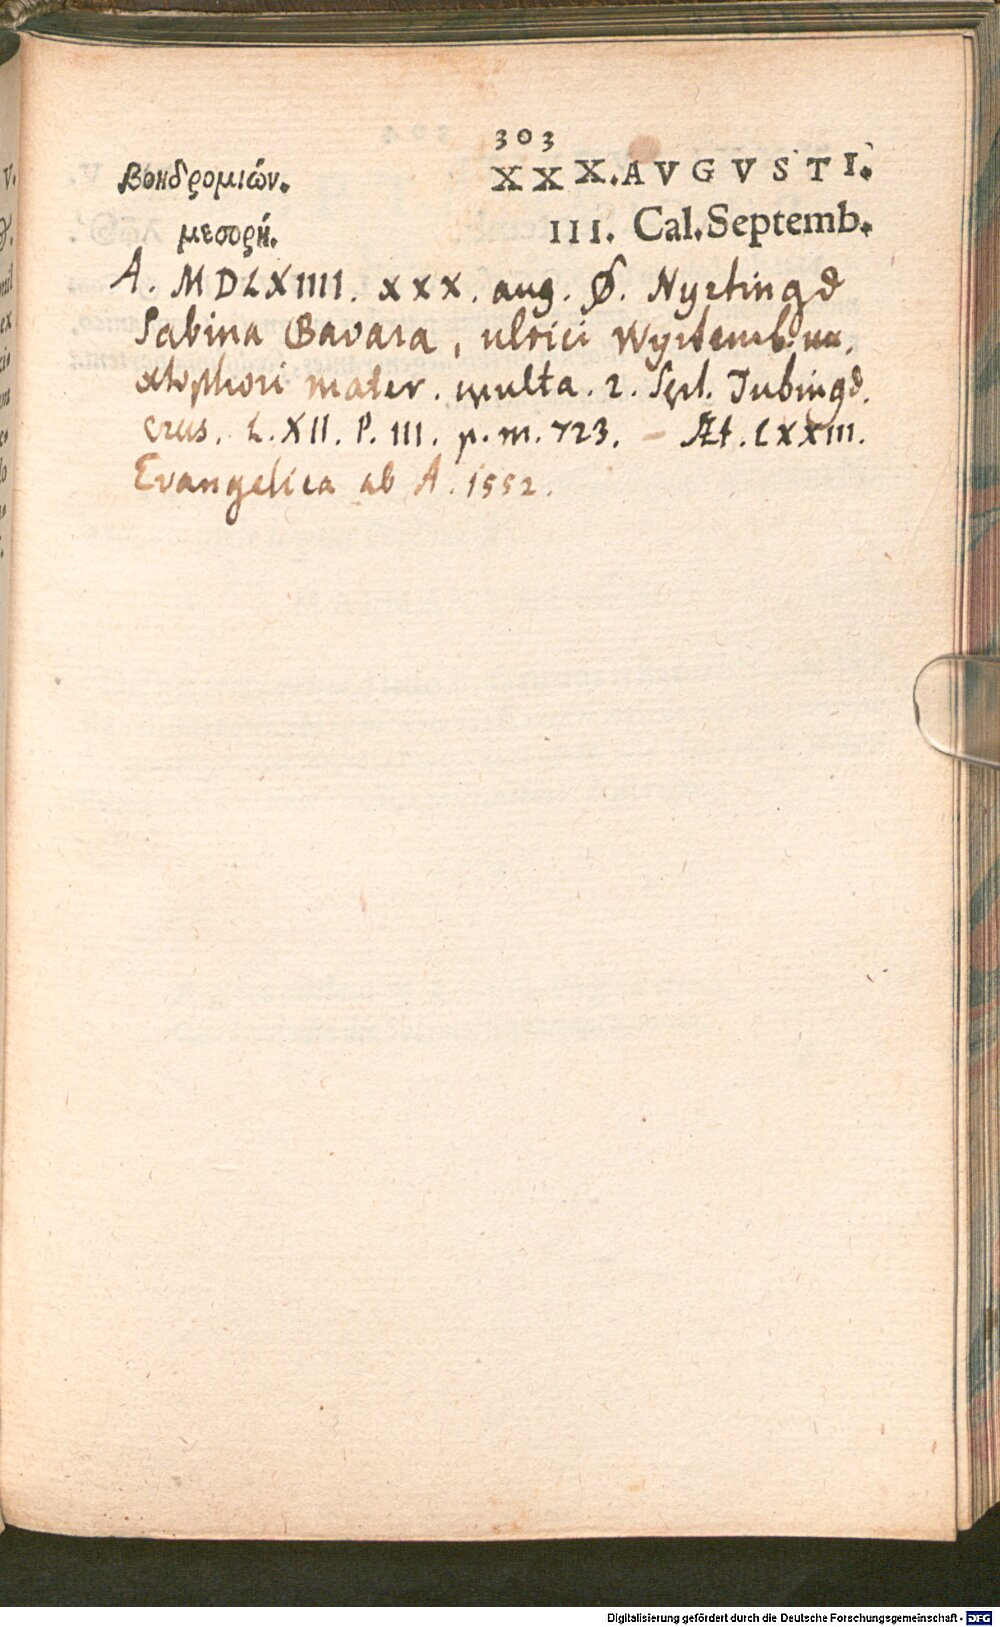 303
Βοηδρομιών. XXX. AVGVSTI.
μεσορή. III. Cal. Septemb.
A. MDLXIIII. XXX. aug. Ø. Nyrtingæ
Sabina Bavara, ulrici Wyrtemb. ux.
mater. multa. 2. Sepl. Tubingæ.
crus. L. XII. P. III. p. m. 723. – Æt. LXXIII.
Evangelica ab A. 1552.
Digitalisierung gefördert durch die Deutsche Forschungsgemeinschaft - DFG